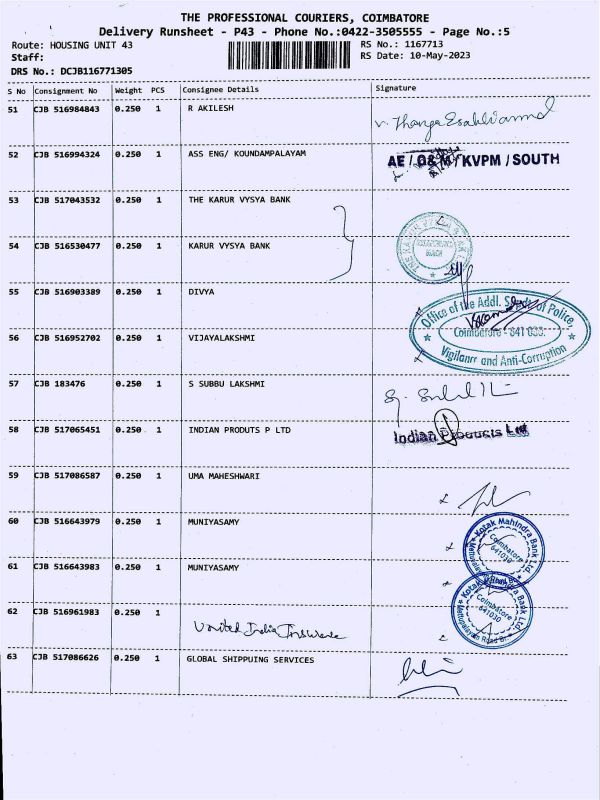 THE PROFESSIONAL COURIERS, COIMBATORE
Delivery Runsheet - P43 - Phone No.:0422-3505555 - Page No.:5
Route: HOUSING UNIT 43 RS No.: 1167713
Staff: RS Date: 10-May-2023
DRS No.: DCJB116771305
S No Consignment No Weight PCS Consignee Details Signature
51 CJB 516984843 0.250 1 R AKILESH
52 CJB 516994324 0.250 1 ASS ENG/ KOUNDAMPALAYAM AE / O& M / KVPM / SOUTH
53 CJB 517043532 0.250 1 THE KARUR VYSYA BANK
54 CJB 516530477 0.250 1 KARUR VYSYA BANK
55 CJB 516903389 0.250 1 DIVYA
Office of the Addl. of Police,
Coimbatore - 641
Vigilance and Anti-Corruption
56 CJB 516952702 0.250 1 VIJAYALAKSHMI
57 CJB 183476 0.250 1 S SUBBU LAKSHMI
58 CJB 517065451 0.250 1 INDIAN PRODUTS P LTD Indian Products Ltd
59 CJB 517086587 0.250 1 UMA MAHESHWARI
60 CJB 516643979 0.250 1 MUNIYASAMY
Kotak Mahindra Bank Ltd.
Coimbatore
641030
61 CJB 516643983 0.250 1 MUNIYASAMY
Coimbatore
641030
62 CJB 516961983 0.250 1
United India Insurance
63 CJB 517086626 0.250 1 GLOBAL SHIPPUING SERVICES